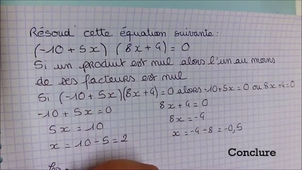 Résoud cette équation suivante :
(-10+5x) (8x+4) = 0
Si un produit est nul alors l'un au moins
de ses facteurs est nul
Si (-10+5x)(8x+4)=0 alors -10+5x=0 ou 8x+4=0
-10+5x=0
8x+4=0
5x=10
8x=-4
x=10÷5=2
x=-4÷8=-0,5
Conclure